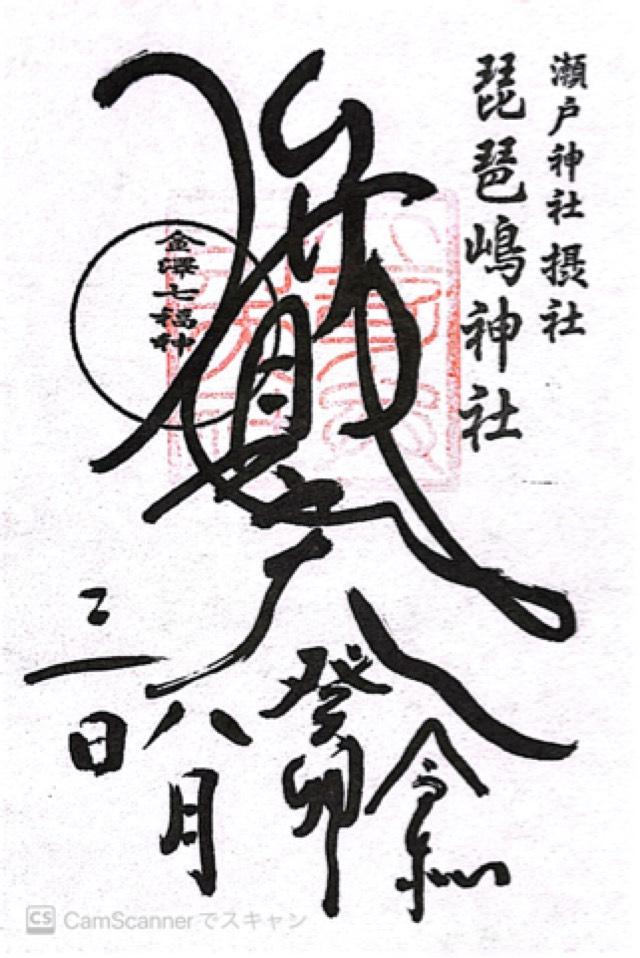 瀬戸神社摂社
琵琶嶋神社
金澤七福神
令和
癸卯
八月
三日
CS CamScannerでスキャン